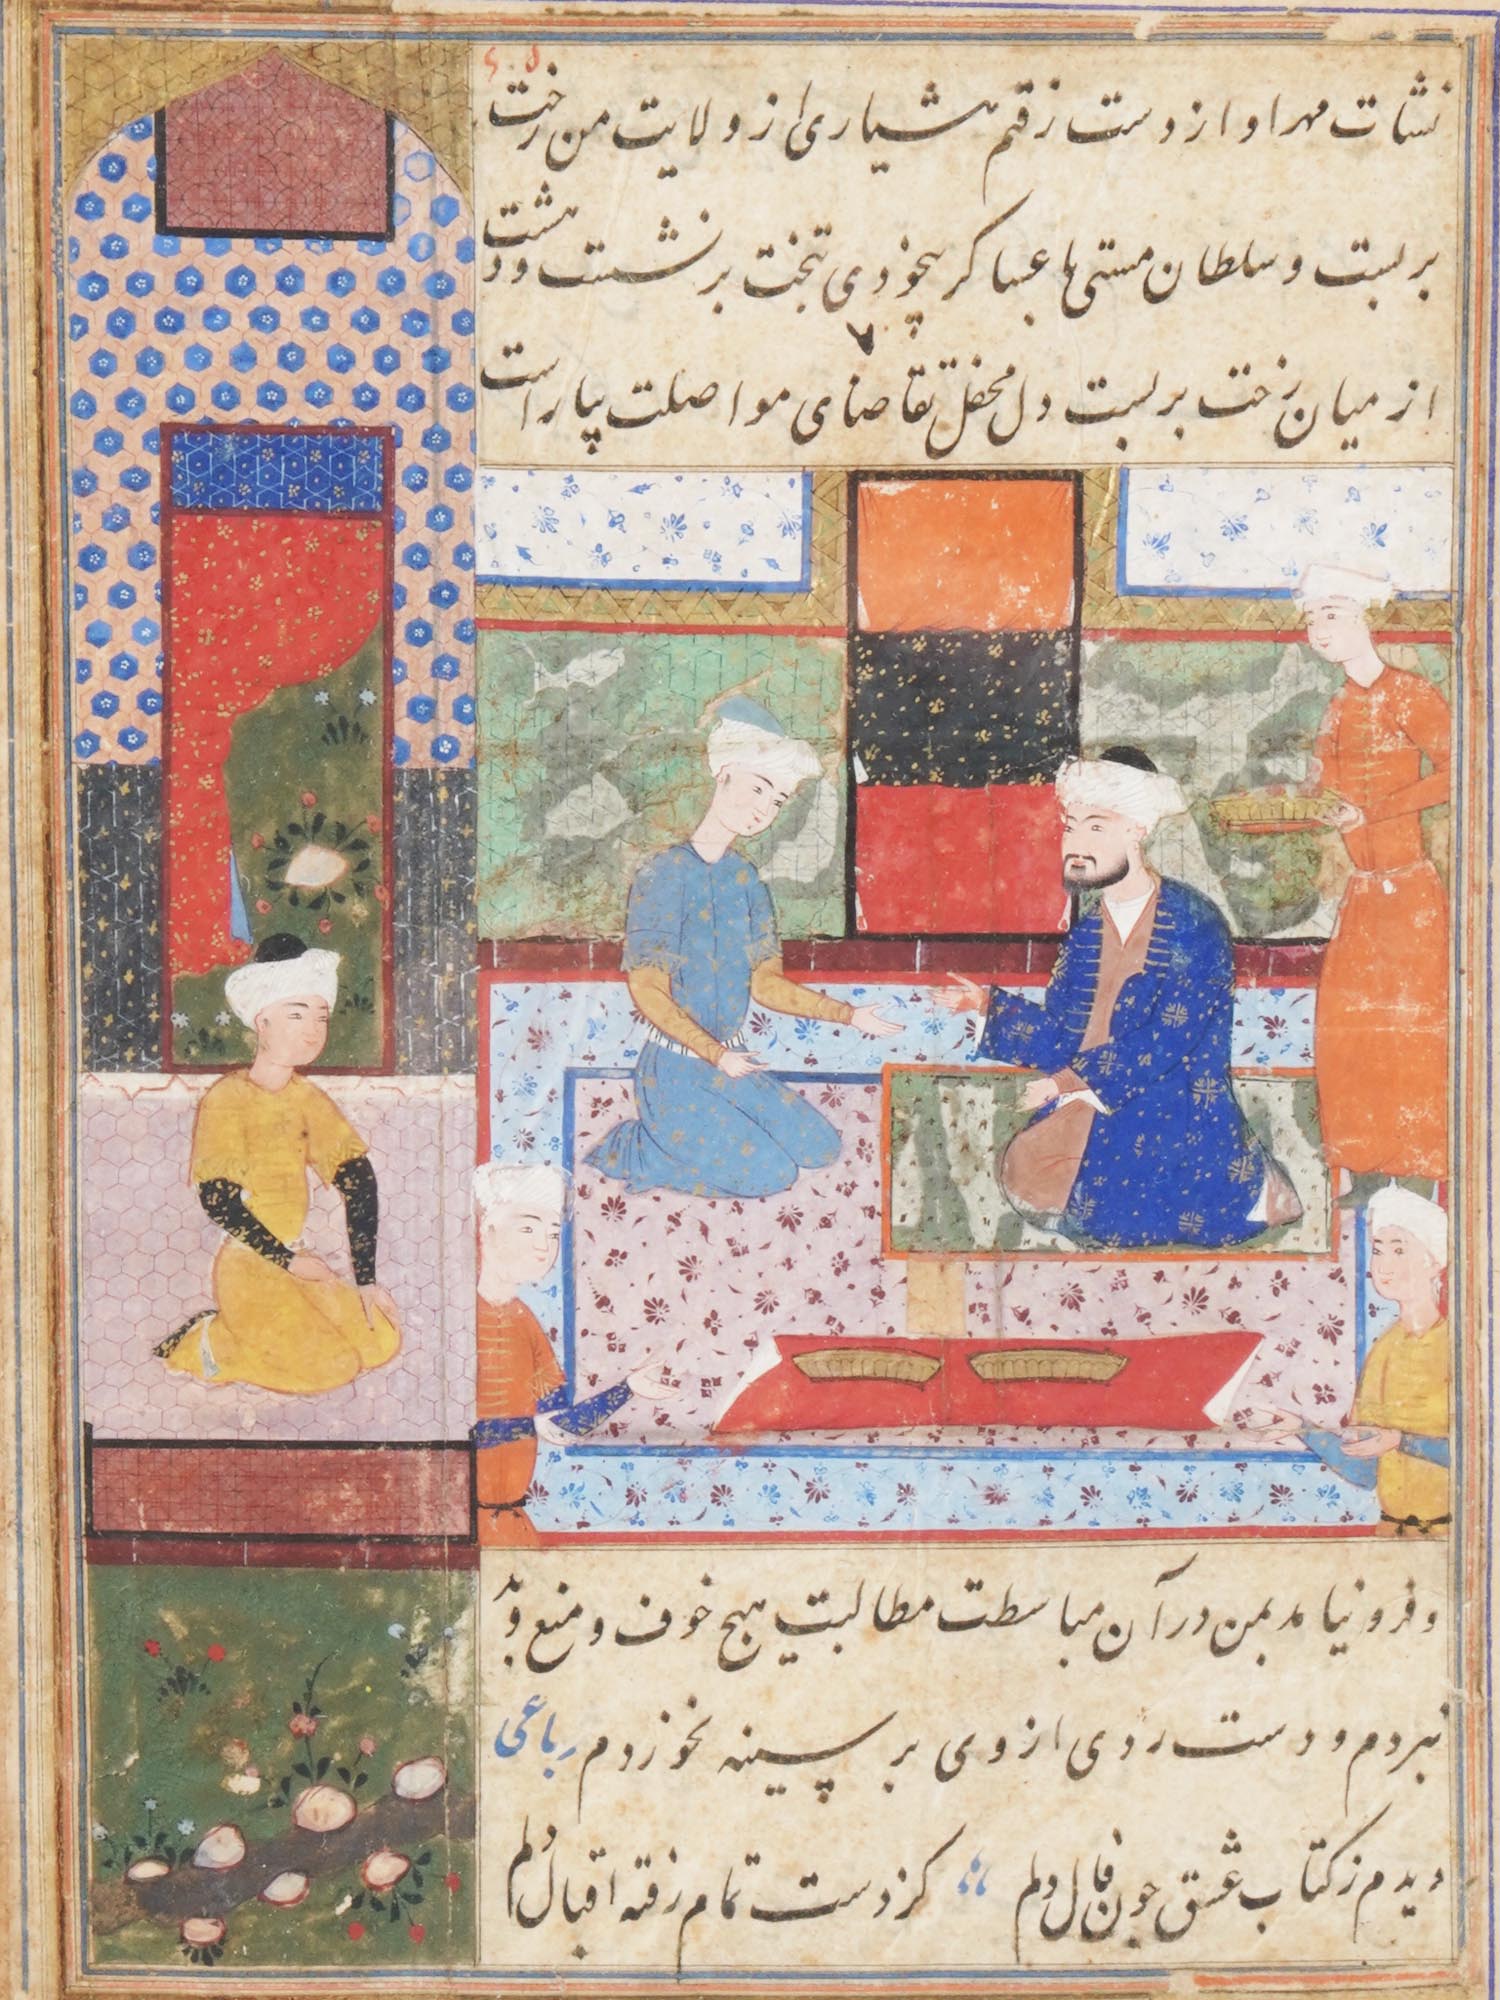 نشات مهر او از دست زقم هشیاری از ولایت من رخت
بر بست و سلطان مستی با عساکر بیخودی بتخت بر نشست و دهشت
از میان رخت بر بست دل محفل تقاضای مواصلت بیاراست
و فرو نیامد بمن در آن مباسطت مطالبت هیچ خوف و منع و
نبردم و دست ردی از وی بر سینه نخوردم رباعی
دیدم ز کتاب عشق چون فال دلم
کز دست تمام رفته اقبال دلم